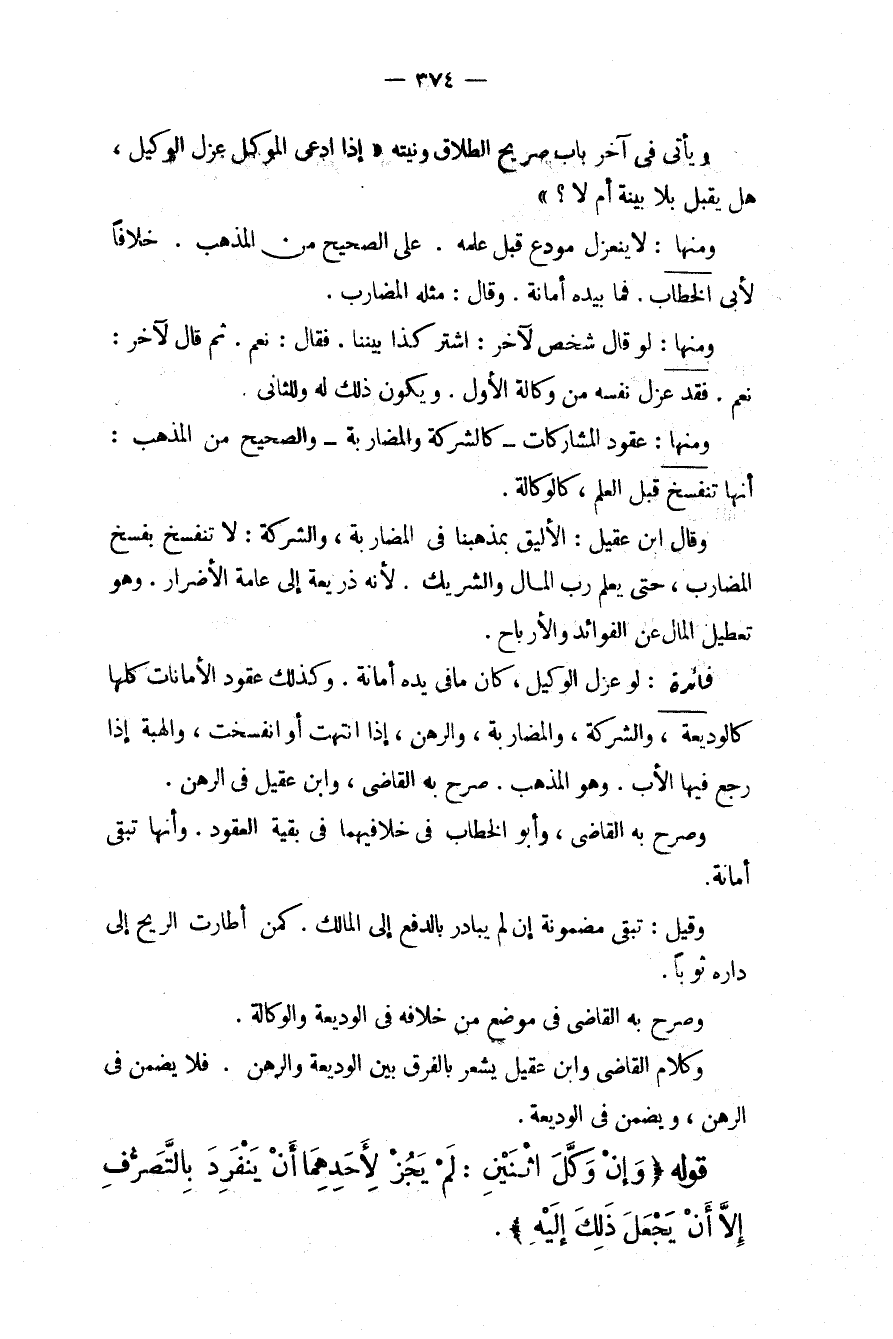 — ٣٧٤ —
ويأتى فى آخر باب صريح الطلاق ونيته « إذا ادعى الموكل عزل الوكيل ،
هل يقبل بلا بينة أم لا ؟ »
ومنها : لا ينعزل مودع قبل علمه . على الصحيح من المذهب . خلافاً
لأبى الخطاب . فما بيده أمانة . وقال : مثله المضارب .
ومنها : لو قال شخص لآخر : اشتر كذا بيننا . فقال : نعم . ثم قال لآخر :
نعم . فقد عزل نفسه من وكالة الأول . ويكون ذلك له وللثانى .
ومنها : عقود المشاركات ــ كالشركة والمضاربة ــ والصحيح من المذهب :
أنها تنفسخ قبل العلم ، كالوكالة .
وقال ابن عقيل : الأليق بمذهبنا فى المضاربة ، والشركة : لا تنفسخ بفسخ
المضارب ، حتى يعلم رب المـال والشريك . لأنه ذريعة إلى عامة الأضرار . وهو
تعطيل المال عن الفوائد والأرباح .
فائدة : لو عزل الوكيل ، كان مافى يده أمانة . وكذلك عقود الأمانات كلها
كالوديعة ، والشركة ، والمضاربة ، والرهن ، إذا انتهت أو انفسخت ، والهبة إذا
رجع فيها الأب . وهو المذهب . صرح به القاضى ، وابن عقيل فى الرهن .
وصرح به القاضى ، وأبو الخطاب فى خلافيهما فى بقية العقود . وأنها تبقى
أمانة .
وقيل : تبقى مضمونة إن لم يبادر بالدفع إلى المالك . كمن أطارت الريح إلى
داره ثوباً .
وصرح به القاضى فى موضع من خلافه فى الوديعة والوكالة .
وكلام القاضى وابن عقيل يشعر بالفرق بين الوديعة والرهن . فلا يضمن فى
الرهن ، ويضمن فى الوديعة .
قوله ﴿ وَإِنْ وَكَّلَ اثْنَيْنِ : لَمْ يَجُزْ لِأَحَدِهِمَا أَنْ يَنْفَرِدَ بِالتَّصَرُّفِ
إِلاَّ أَنْ يَجْعَلَ ذَلِكَ إِلَيْهِ ﴾ .